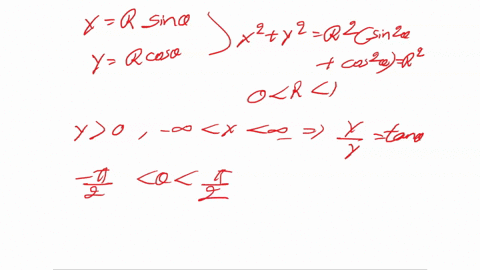 x = R sinθ
y = R cosθ
x² + y² = R² (sin²θ
+ cos²θ) = R²
0 < R < 1
y > 0 , -∞ < x < ∞ ⇒ x/y = tanθ
-π/2 < θ < π/2